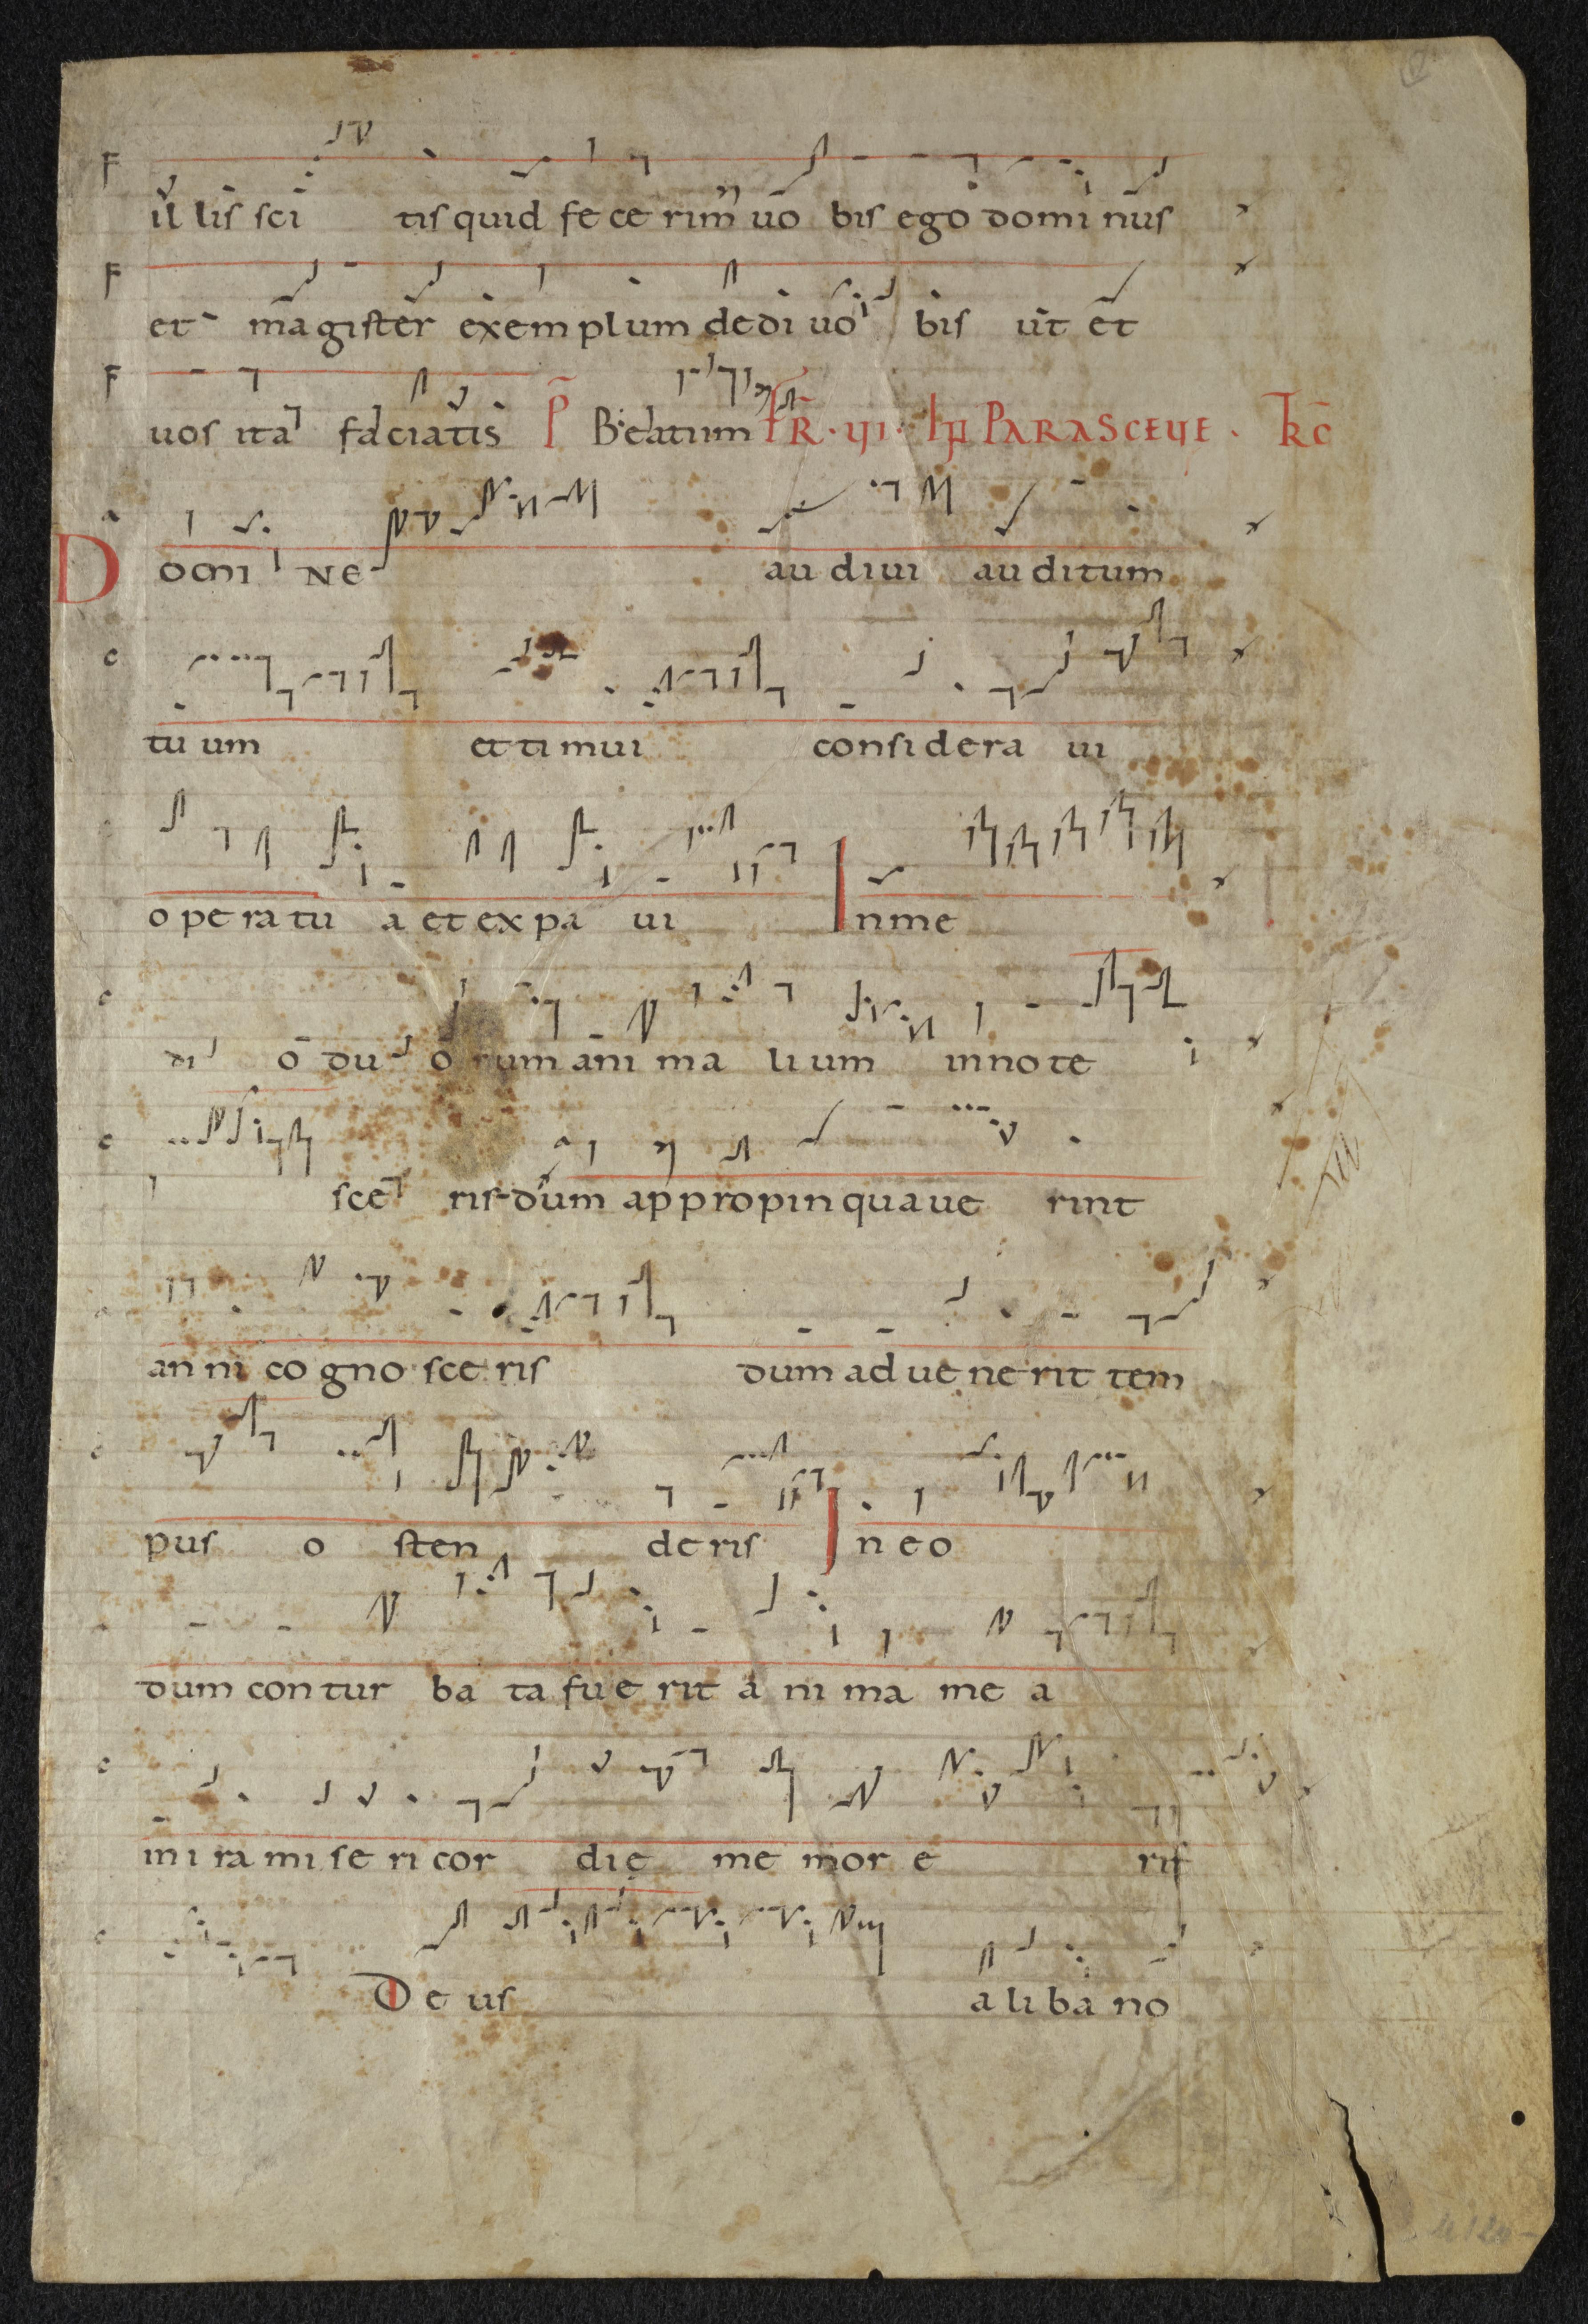 il lis sci tis quid fe ce rim uo bis ego domi nus
et magister exemplum dedi uo bis ut et
uos ita faciatis P̄ Beatum FR̄ · VI · IN PARASCEVE . R̄C̄
Domi NE au diui au ditum
tu um et ti mui considera ui
o pe ra tu a et ex pa ui In me
di o du o rum ani ma li um in no te
sce ris dum appropinquaue rint
an ni co gno sce ris dum ad ue ne rit tem
pus o sten de ris In e o
dum con tur ba ta fu e rit a ni ma me a
in i ra mi se ri cor dię me mor e ris
De us a li ba no